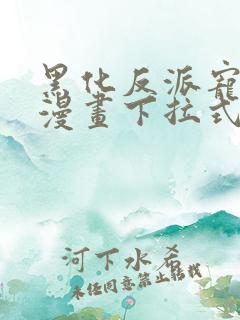 黑化反派寵
漫畫下拉式
河下水希
未经同意禁止转载